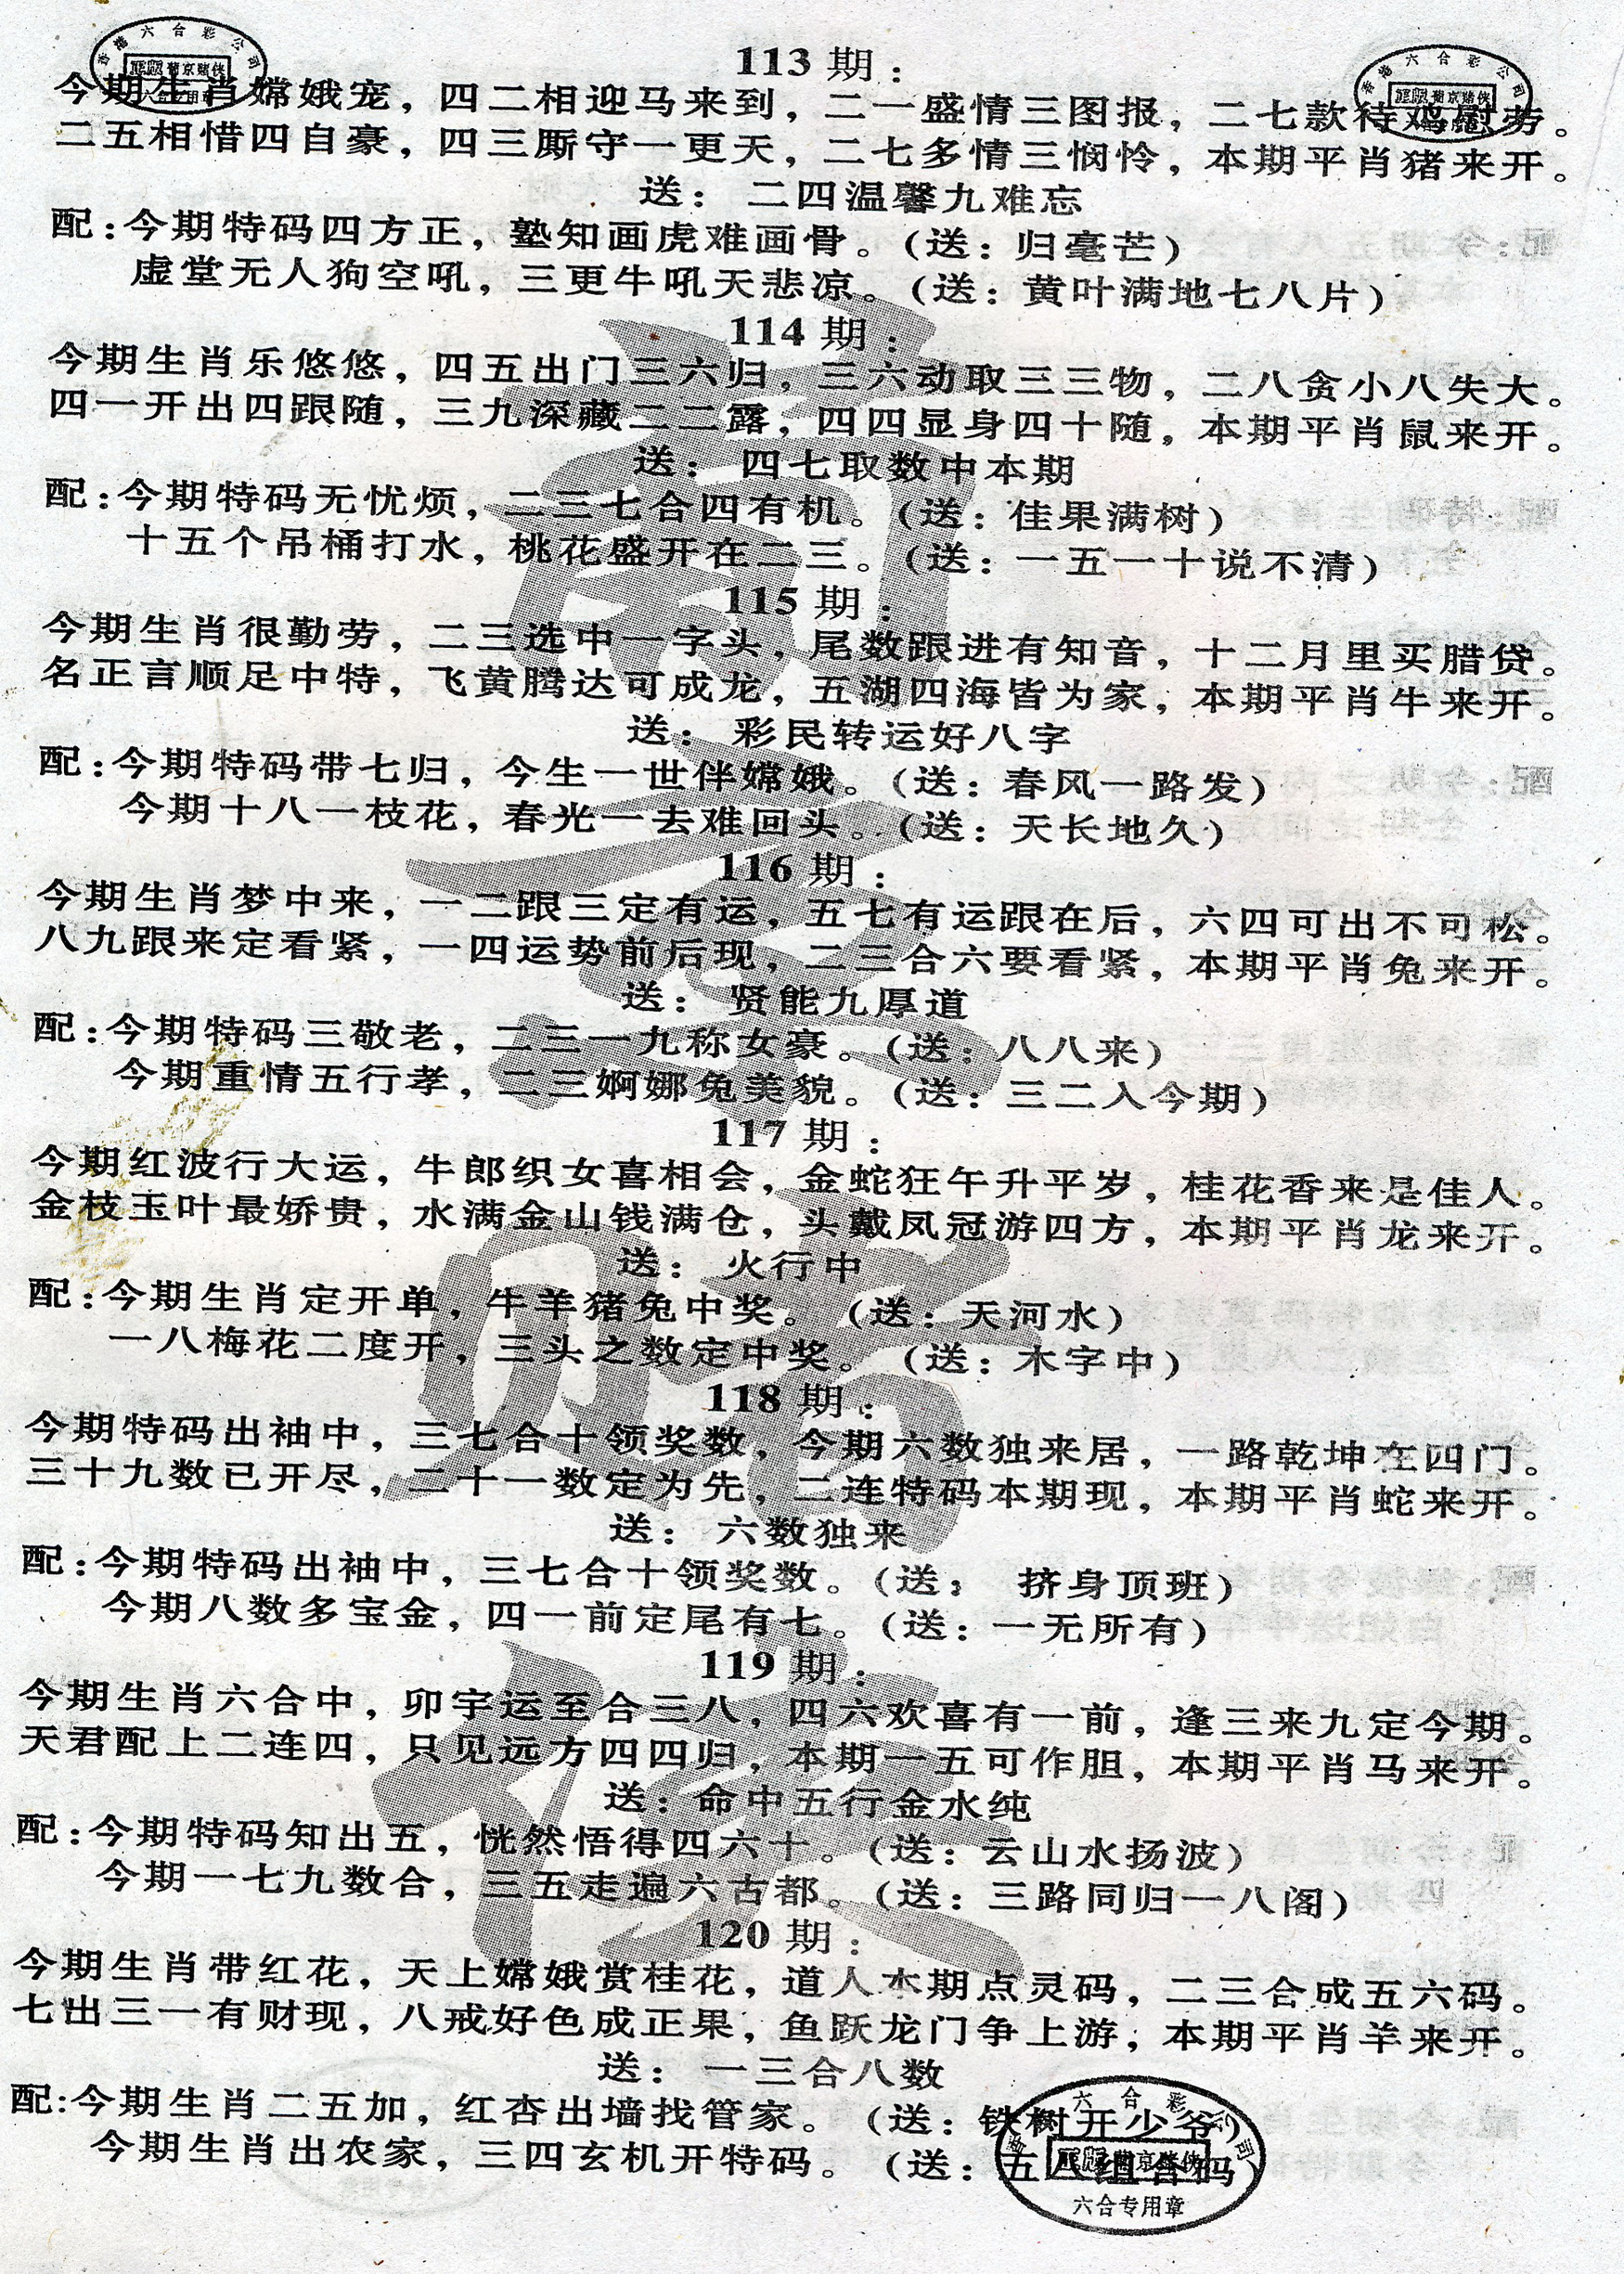 香港六合彩公司
正版葡京赌侠
六合专用章
香港六合彩公司
正版葡京赌侠
113 期：
今期生肖嫦娥宠，四二相迎马来到，二一盛情三图报，二七款待鸡慰劳。
二五相惜四自豪，四三厮守一更天，二七多情三悯怜，本期平肖猪来开。
送： 二四温馨九难忘
配：今期特码四方正，塾知画虎难画骨。（送：归毫芒）
虚堂无人狗空吼，三更牛吼天悲凉。（送：黄叶满地七八片）
114 期：
今期生肖乐悠悠，四五出门三六归，三六动取三三物，二八贪小八失大。
四一开出四跟随，三九深藏二二露，四四显身四十随，本期平肖鼠来开。
送： 四七取数中本期
配：今期特码无忧烦，二三七合四有机。（送：佳果满树）
十五个吊桶打水，桃花盛开在二三。（送：一五一十说不清）
115 期：
今期生肖很勤劳，二三选中一字头，尾数跟进有知音，十二月里买腊贷。
名正言顺足中特，飞黄腾达可成龙，五湖四海皆为家，本期平肖牛来开。
送： 彩民转运好八字
配：今期特码带七归，今生一世伴嫦娥。（送：春风一路发）
今期十八一枝花，春光一去难回头。（送：天长地久）
116 期：
今期生肖梦中来，一二跟三定有运，五七有运跟在后，六四可出不可松。
八九跟来定看紧，一四运势前后现，二三合六要看紧，本期平肖兔来开。
送： 贤能九厚道
配：今期特码三敬老，二三一九称女豪。（送：八八来）
今期重情五行孝，二三婀娜兔美貌。（送：三二入今期）
117 期：
今期红波行大运，牛郎织女喜相会，金蛇狂午升平岁，桂花香来是佳人。
金枝玉叶最娇贵，水满金山钱满仓，头戴凤冠游四方，本期平肖龙来开。
送： 火行中
配：今期生肖定开单，牛羊猪兔中奖。（送：天河水）
一八梅花二度开，三头之数定中奖。（送：木字中）
118 期：
今期特码出袖中，三七合十领奖数，今期六数独来居，一路乾坤在四门。
三十九数已开尽，二十一数定为先，二连特码本期现，本期平肖蛇来开。
送： 六数独来
配：今期特码出袖中，三七合十领奖数。（送： 挤身顶班）
今期八数多宝金，四一前定尾有七。（送：一无所有）
119 期：
今期生肖六合中，卯宇运至合三八，四六欢喜有一前，逢三来九定今期。
天君配上二连四，只见远方四四归，本期一五可作胆，本期平肖马来开。
送：命中五行金水纯
配：今期特码知出五，恍然悟得四六十。（送：云山水扬波）
今期一七九数合，三五走遍六古都。（送：三路同归一八阁）
120 期：
今期生肖带红花，天上嫦娥赏桂花，道人本期点灵码，二三合成五六码。
七出三一有财现，八戒好色成正果，鱼跃龙门争上游，本期平肖羊来开。
送： 一三合八数
配：今期生肖二五加，红杏出墙找管家。（送：铁树开少爷）
今期生肖出农家，三四玄机开特码。（送：五八组合码）
六合彩公司
正版葡京赌侠
六合专用章
葡京赌侠